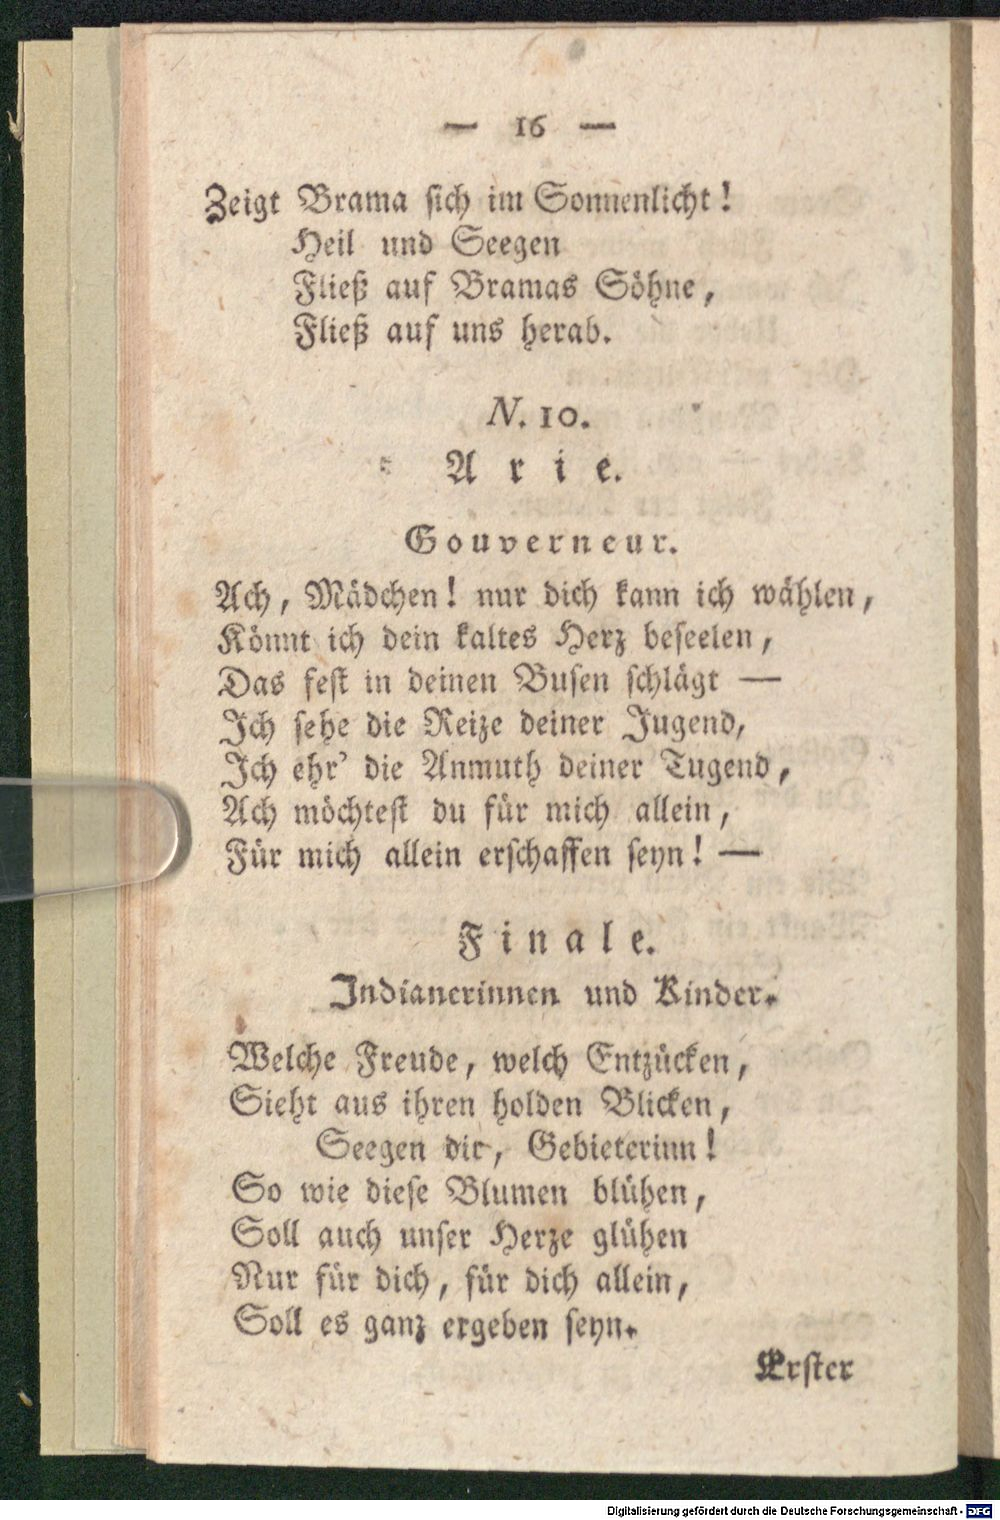 — 16 —
Zeigt Brama sich im Sonnenlicht!
Heil und Seegen
Fließ auf Bramas Söhne,
Fließ auf uns herab.
N. 10.
Arie.
Gouverneur.
Ach, Mädchen! nur dich kann ich wählen,
Könnt ich dein kaltes Herz beseelen,
Das fest in deinen Busen schlägt —
Ich sehe die Reize deiner Jugend,
Ich ehr' die Anmuth deiner Tugend,
Ach möchtest du für mich allein,
Für mich allein erschaffen seyn! —
Finale.
Indianerinnen und Kinder.
Welche Freude, welch Entzücken,
Sieht aus ihren holden Blicken,
Seegen dir, Gebieterinn!
So wie diese Blumen blühen,
Soll auch unser Herze glühen
Nur für dich, für dich allein,
Soll es ganz ergeben seyn.
Erster
Digitalisierung gefördert durch die Deutsche Forschungsgemeinschaft - DFG